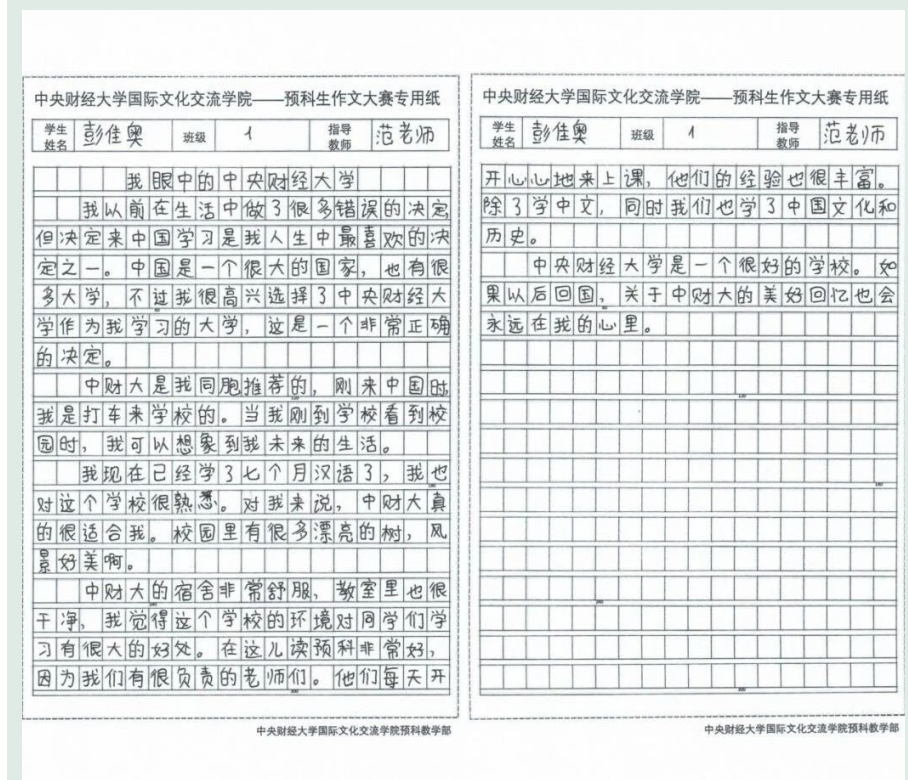 中央财经大学国际文化交流学院——预科生作文大赛专用纸
学生姓名 彭佳奥 班级 1 指导教师 范老师
我眼中的中央财经大学
我以前在生活中做了很多错误的决定
但决定来中国学习是我人生中最喜欢的决
定之一。中国是一个很大的国家，也有很
多大学，不过我很高兴选择了中央财经大
学作为我学习的大学，这是一个非常正确
的决定。
中财大是我同胞推荐的，刚来中国时
我是打车来学校的。当我刚到学校看到校
园时，我可以想象到我未来的生活。
我现在已经学了七个月汉语了，我也
对这个学校很熟悉。对我来说，中财大真
的很适合我。校园里有很多漂亮的树，风
景好美啊。
中财大的宿舍非常舒服，教室里也很
干净，我觉得这个学校的环境对同学们学
习有很大的好处。在这儿读预科非常好，
因为我们有很负责的老师们。他们每天开
中央财经大学国际文化交流学院预科教学部
中央财经大学国际文化交流学院——预科生作文大赛专用纸
学生姓名 彭佳奥 班级 1 指导教师 范老师
开心心地来上课，他们的经验也很丰富。
除了学中文，同时我们也学了中国文化和
历史。
中央财经大学是一个很好的学校。如
果以后回国，关于中财大的美好回忆也会
永远在我的心里。
中央财经大学国际文化交流学院预科教学部